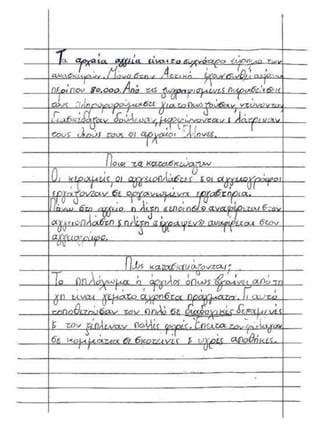 Τα αρχαία αγγεία είναι το συχνότερο εύρημα των
ανασκαφών. Μόνο στην Αττική έχουν σωθεί
περίπου 80.000. Από τις ζωγραφισμένες παραστάσεις
τους πληροφορούμαστε για το πως ζούσαν, ντύνονταν
διασκέδαζαν δούλευαν, μορφώνονταν & λάτρευαν
τους θεούς τους οι αρχαίοι Έλληνες.
Ποιοι τα κατασκεύαζαν
Οι κεραμείς, οι αγγειοπλάστες & οι αγγειογράφοι
εργάζονταν σε οργανωμένα εργαστήρια.
Πάνω στο αγγείο η λέξη «εποίησεν» αναφέρεται στον
αγγειοπλάστη & η λέξη «έγραψεν» αναφέρεται στον
αγγειογράφο.
Πώς κατασκευάζονται;
Το πηλόχωμα ή άργιλος όπως βγαίνει από τη
γη είναι γεμάτο άχρηστα πράγματα. Γι αυτό
τοποθετούσαν τον πηλό σε διαδοχικές δεξαμενές
& τον ξέπλεναν πολλές φορές. Έπειτα τον φύλαγαν
σε κομμάτια σε σκοτεινές & υγρές αποθήκες.